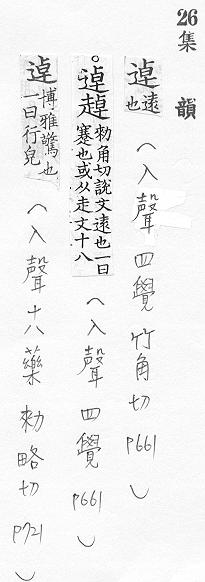 26集韻
逴遠也（入聲四覺竹角切P661）
。逴趠敕角切說文遠也一曰蹇也或从走文十八（入聲四覺P661）
逴博雅驚也一曰行皃（入聲十八藥敕略切P721）